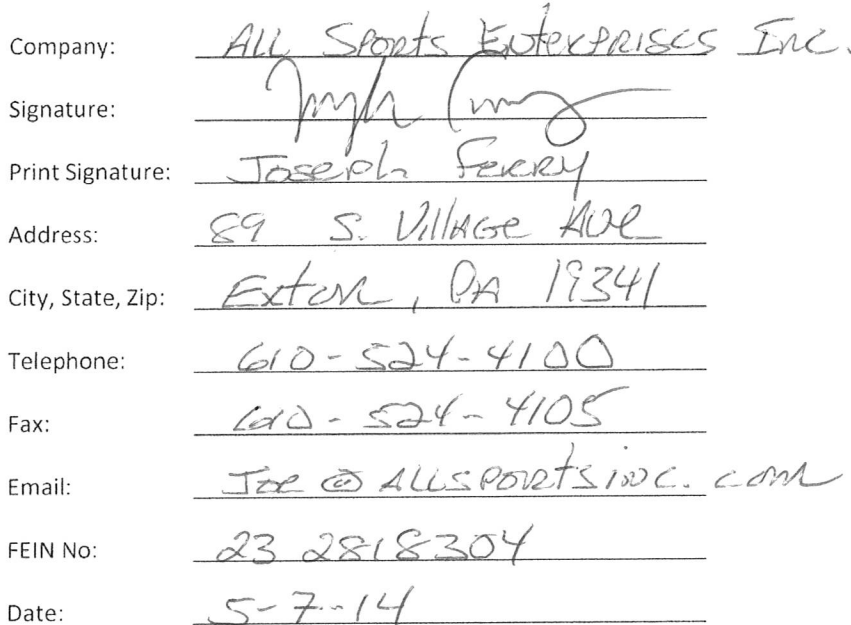 Company: All Sports Enterprises Inc.
Signature:
Print Signature: Joseph Ferry
Address: 89 S. Village Ave
City, State, Zip: Exton, PA 19341
Telephone: 610-524-4100
Fax: 610-524-4105
Email: Joe@ALLSPORTSINC.com
FEIN No: 23 2818304
Date: 5-7-14